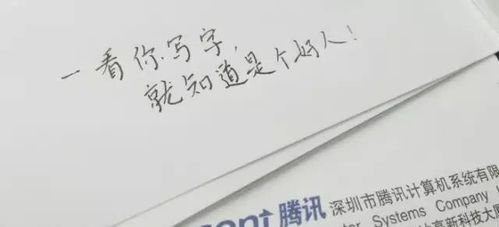 一看你写字，
就知道是个好人！
腾讯 深圳市腾讯计算机系统有限
Systems Company
高新科技大厦